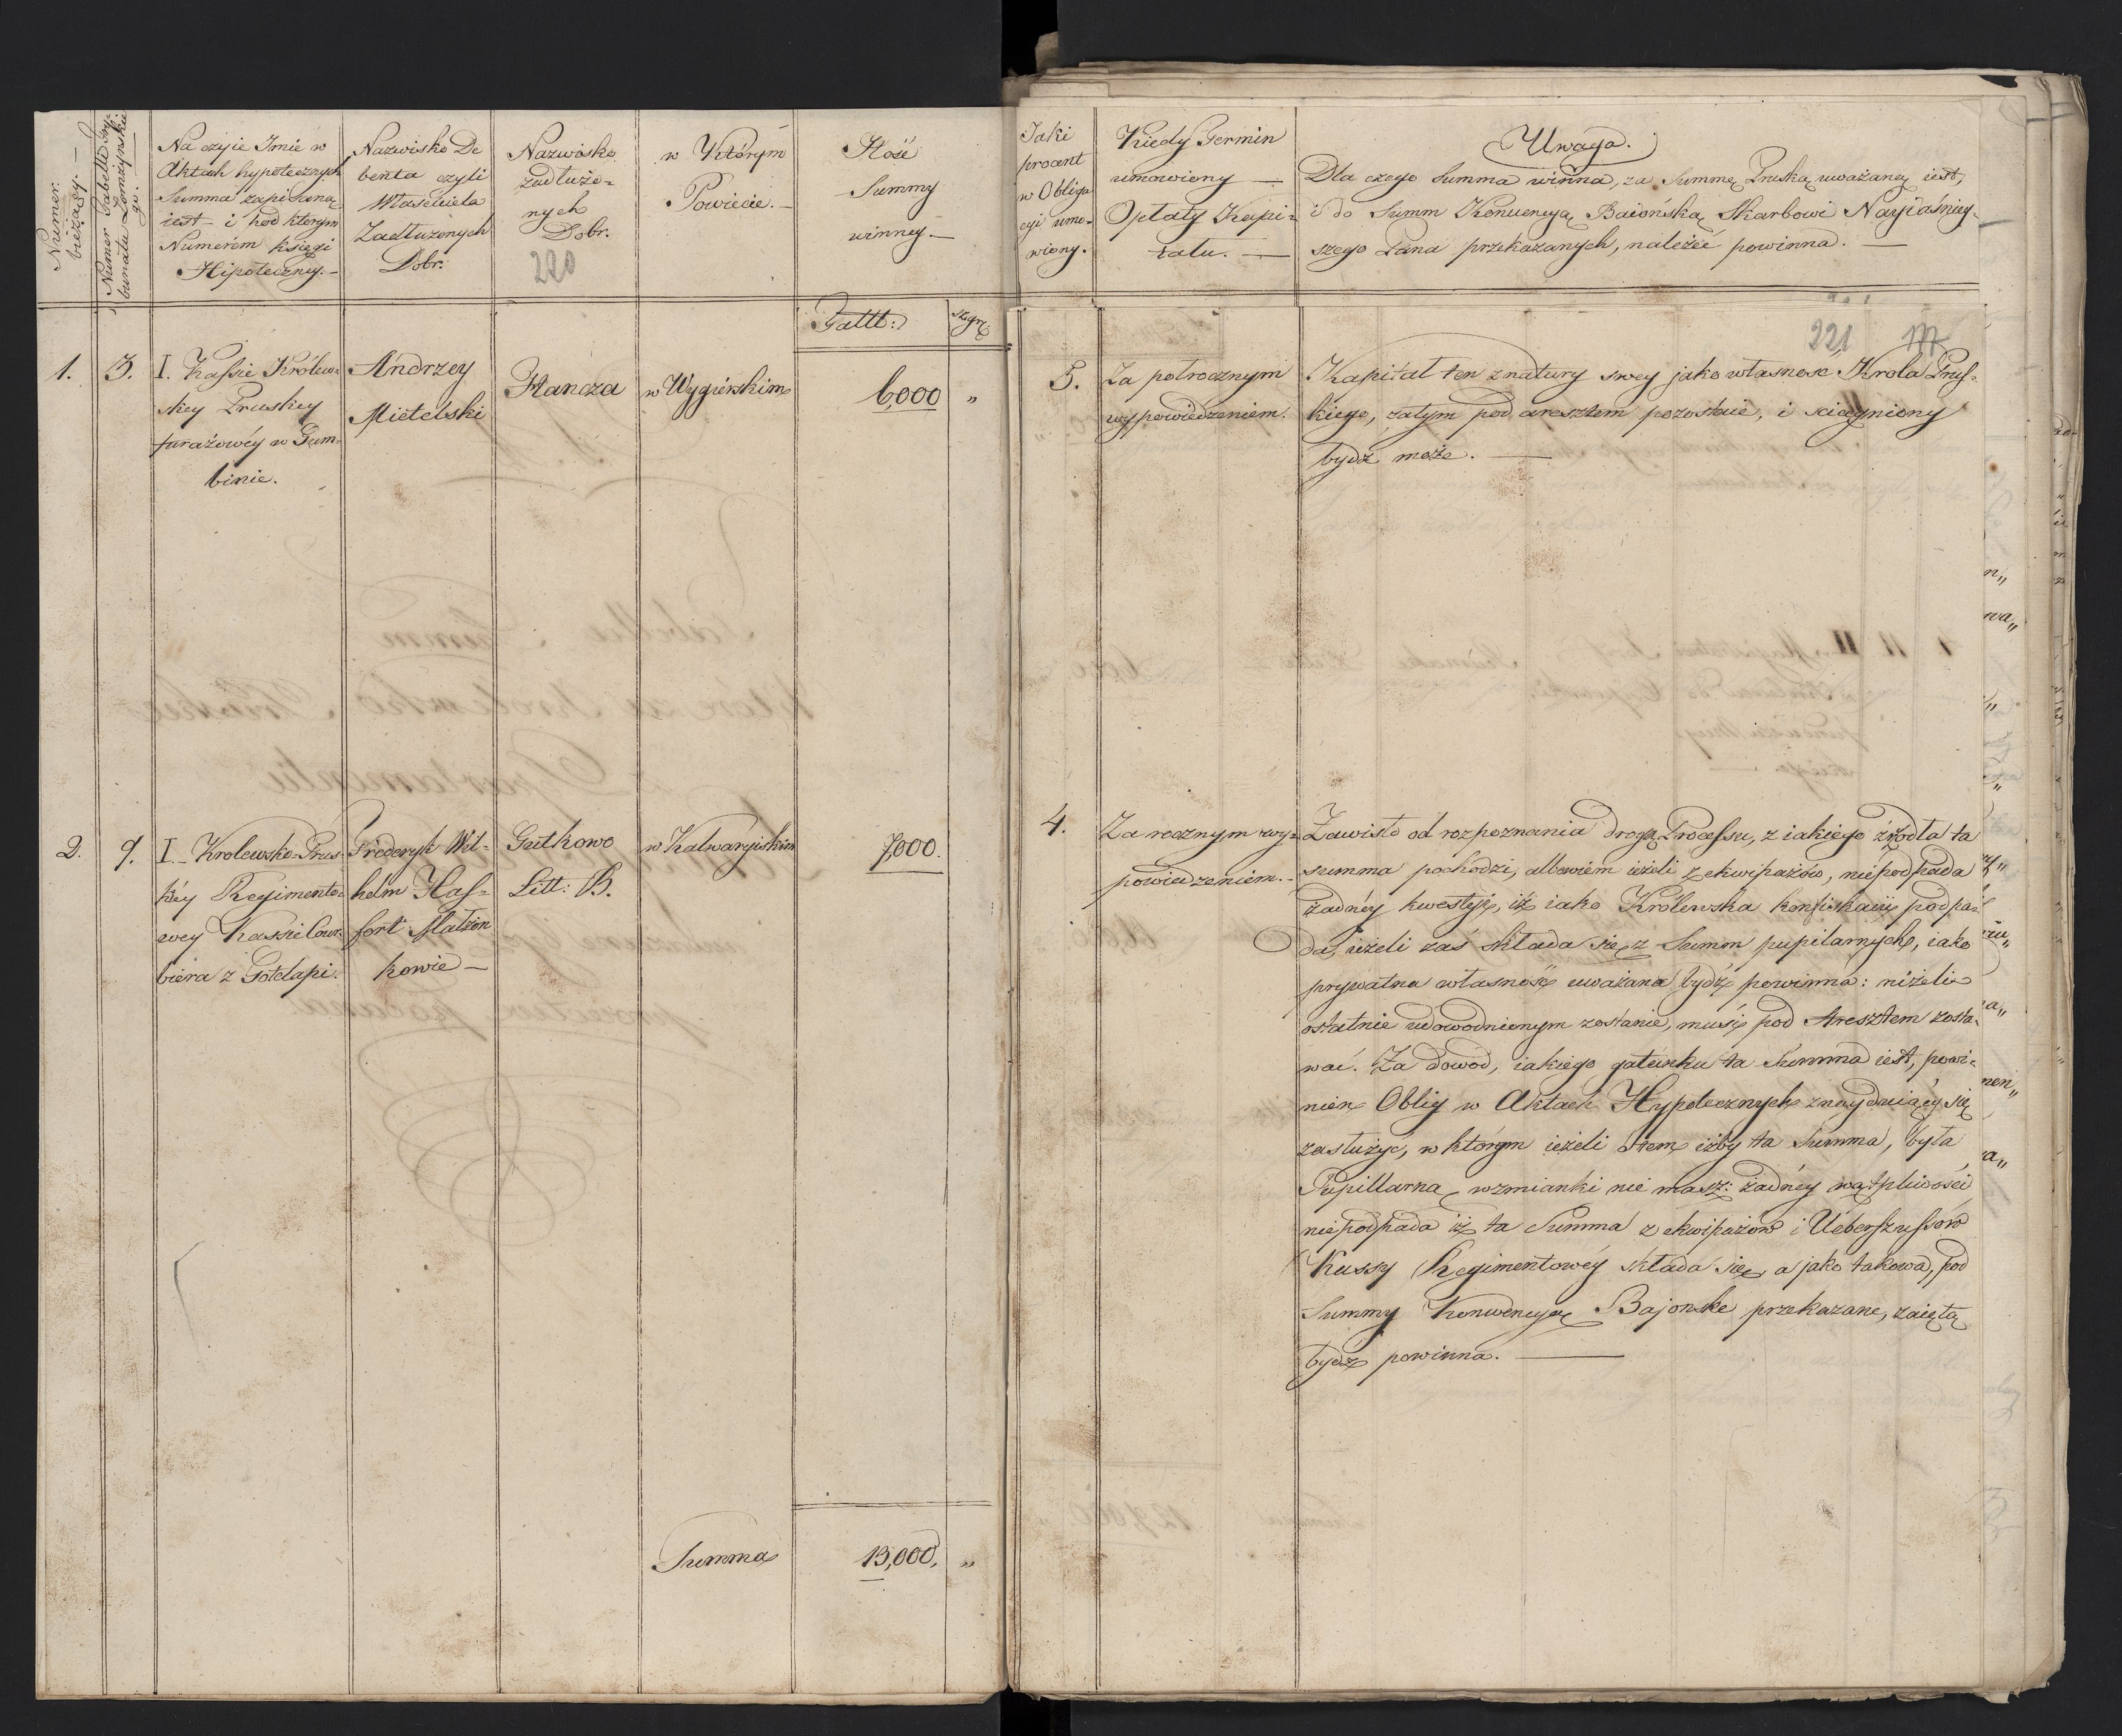 Numer
bieżący. —
Numer Tabelli Try-
bunału Łomzynskie
go. —
Na czyie Imie w
Aktach hypotecznych
Summa zapisana
iest i pod ktorym
Numerem księgi
Hipoteczney. —
Nazwisko De
benta czyli
Własciciela
Zadłużonych
Dobr.
Nazwisko
zadłużo=
nych
Dobr.
220
w Którym
Powiecie. —
Ilość
Summy
winney. —
Jaki
procent
w Obliga
cyi umo=
wiony.
Kiedy Termin
umowiony —
Opłaty Kapi=
tału. —
Uwaga.
Dla czego Summa winna, za Summę Pruską uważaney iest,
i do Summ Konwencyą Baiońską Skarbowi Nayiaśniey-
szego Pana przekazanych, należeć powinna. —
Tall:
221
1.
3.
I. Kassie Królew=
skiey Pruskiey
furażowéy w Gum=
binie.
Andrzey
Mietelski
Hancza
w Wygierskim
6,000 "
5.
Za połrocznym
wypowiedzeniem.
Kapitał ten z natury swey jako własność Krola Prus-
kiego, zatym pod aresztem pozostaie, i sciągniony
bydź może. —
2.
9.
I. Krolewsko-Prus-
kiéy Regimento=
wey Kassie Cour=
biera z Gołdapi.
Frederyk Wil-
helm Has-
fort Małżon
kowie —
Gutkowo
Litt: B.
w Kalwaryiskim
7,000.
4.
Za rocznym wy=
powiedzeniem. —
Zawisło od rozpoznania drogą Processu, z iakiego źrodła ta
summa pochodzi, albowiem ieżeli z ekwipażów, niepodpada
żadnéy kwestyi, iż iako Królewska konfiskacii podpa=
da, ieżeli zaś składa się z Summ pupilarnych, iako
prywatna własność uważana bydź powinna: niżeli
ostatnie udowodnionym zostanie, musi pod Aresztem zosta=
wać. Za dowod, iakiego gatunku ta Summa iest, powi=
nien Oblig w Aktach Hypotecznych znayduiący się
zasłużyć, w którym ieżeli o tem iżby ta Summa, była
Pupillarna, wzmianki nie masz: żadnéy wątpliwości
niepodpada iż ta Summa z ekwipażow i Ueberszussow
Kassy Regimentowéy składa się, a jako takowa, pod
Summy Konwencyą Bajonske przekazane, zaiętą
bydź powinna. —
Summa
13,000, "